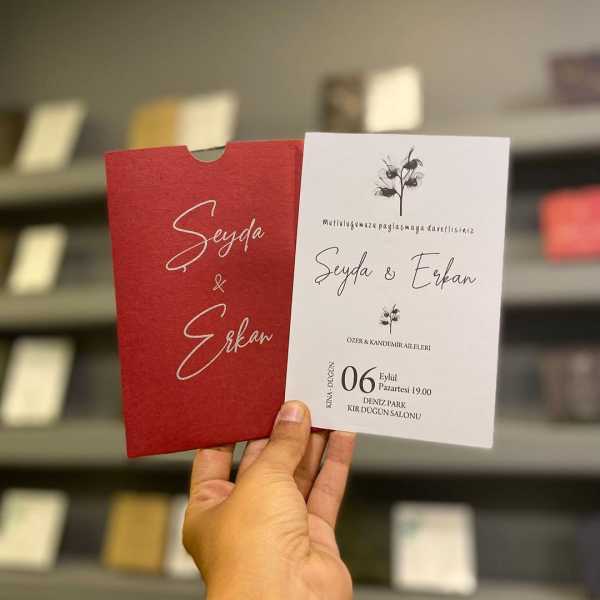 Şeyda
&
Erkan
Mutluluğumuzu paylaşmaya davetlisiniz
Şeyda & Erkan
ÖZER & KANDEMİR AİLELERİ
KINA - DÜĞÜN
06 Eylül
Pazartesi 19.00
DENİZ PARK
KIR DÜĞÜN SALONU